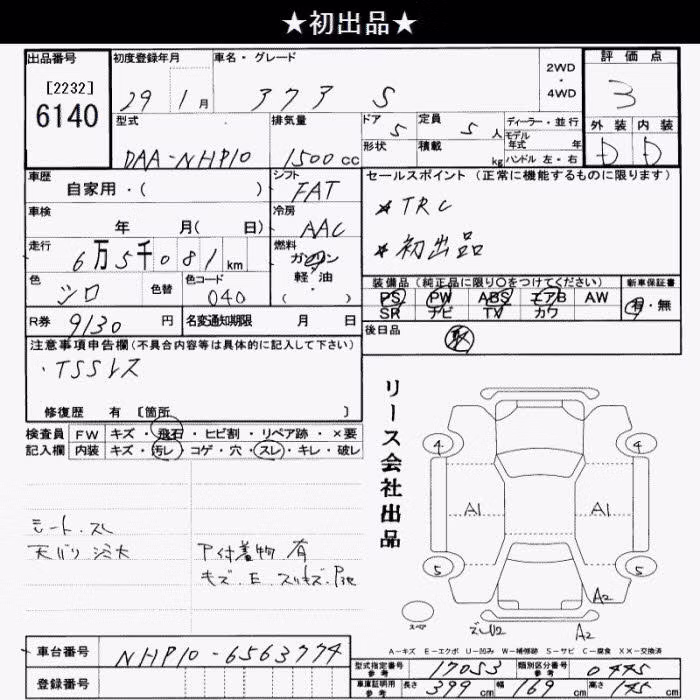 ★初出品★
出品番号 初度登録年月 車名・グレード 2WD ・ 4WD 評価点
[2232]
6140
29 1月 373 S 3
型式 排気量 ドア 5 定員 5人 ディーラー・並行 外装 内装
形状 積載 kg モデル年式 年 ハンドル 左・右
DAA-NHP10 1500cc D D
車歴 自家用・( ) シフト FAT
セールスポイント(正常に機能するものに限ります)
車検 年 月( 日) 冷房 AAC
★TRC
★初出品
走行 6万5千081km 燃料 ガソリン 軽・油 ( )
色 シロ 色替 色コード 040
装備品(純正品に限り○をつけてください) 新車保証書
PS PW ABS エアB AW 有・無
SR ナビ TV カワ
R券 9130円 名変通知期限 月 日
後日品 取
注意事項申告欄(不具合内容等は具体的に記入して下さい)
・TSSレス
修復歴 有 [箇所 ]
検査員 FW キズ・飛石・ヒビ割・リペア跡・×要
記入欄 内装 キズ・汚レ・コゲ・穴・スレ・キレ・破レ
リース会社出品
4 4
A1 A1
5 5
シート.スレ
天バリ シミ大
P付着物 有
キズ.E.スリキズ.
A2
スペア
A2
A-キズ E-エクボ U-凹み W-補修跡 S-サビ C-腐食 XX-交換済
車台番号 NHP10-6563774
登録番号
型式指定番号 参考 17053 類別区分番号 参考 0445
車庫証明用 参考 長さ 399cm 幅 169cm 高さ 145cm